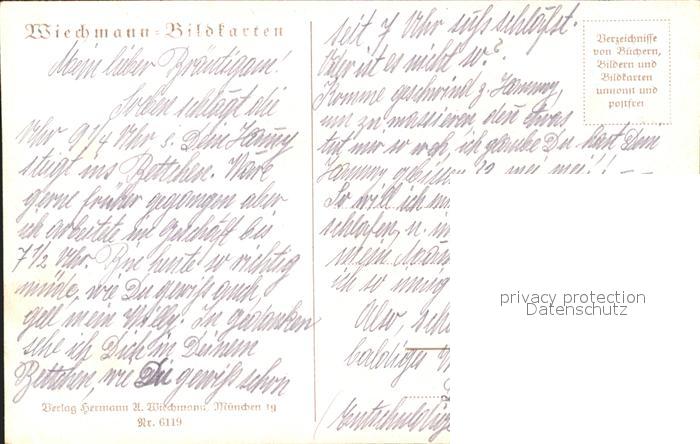 Wiechmann-Bildkarten
Mein lieber Bräutigam!
Soeben schlägt die
Uhr 9 1/4 Uhr u. Dein Hanny
steigt ins Bettchen. Wäre
gerne früher gegangen aber
ich arbeitete im Geschäft bis
7 1/2 Uhr. Bin heute so richtig
müde, wie Du gewiß auch,
gell mein Willy. In Gedanken
sehe ich Dich in Deinem
Bettchen, wie Du gewiß schon
Verlag Hermann A. Wiechmann, München 19
Nr. 6119
seit 7 Uhr süß schläfst.
Oder ist es nicht so?
Komme geschwind z. Hanny,
um zu massieren denn etwas
tut mir so weh, ich glaube Du hast Dein
Hanny gebissen
So will ich
schlafen, u.
ich so innig
Also,
baldiges
(Entschuldige
Verzeichnisse
von Büchern,
Bildern und
Bildkarten
umsonst und
postfrei
privacy protection
Datenschutz